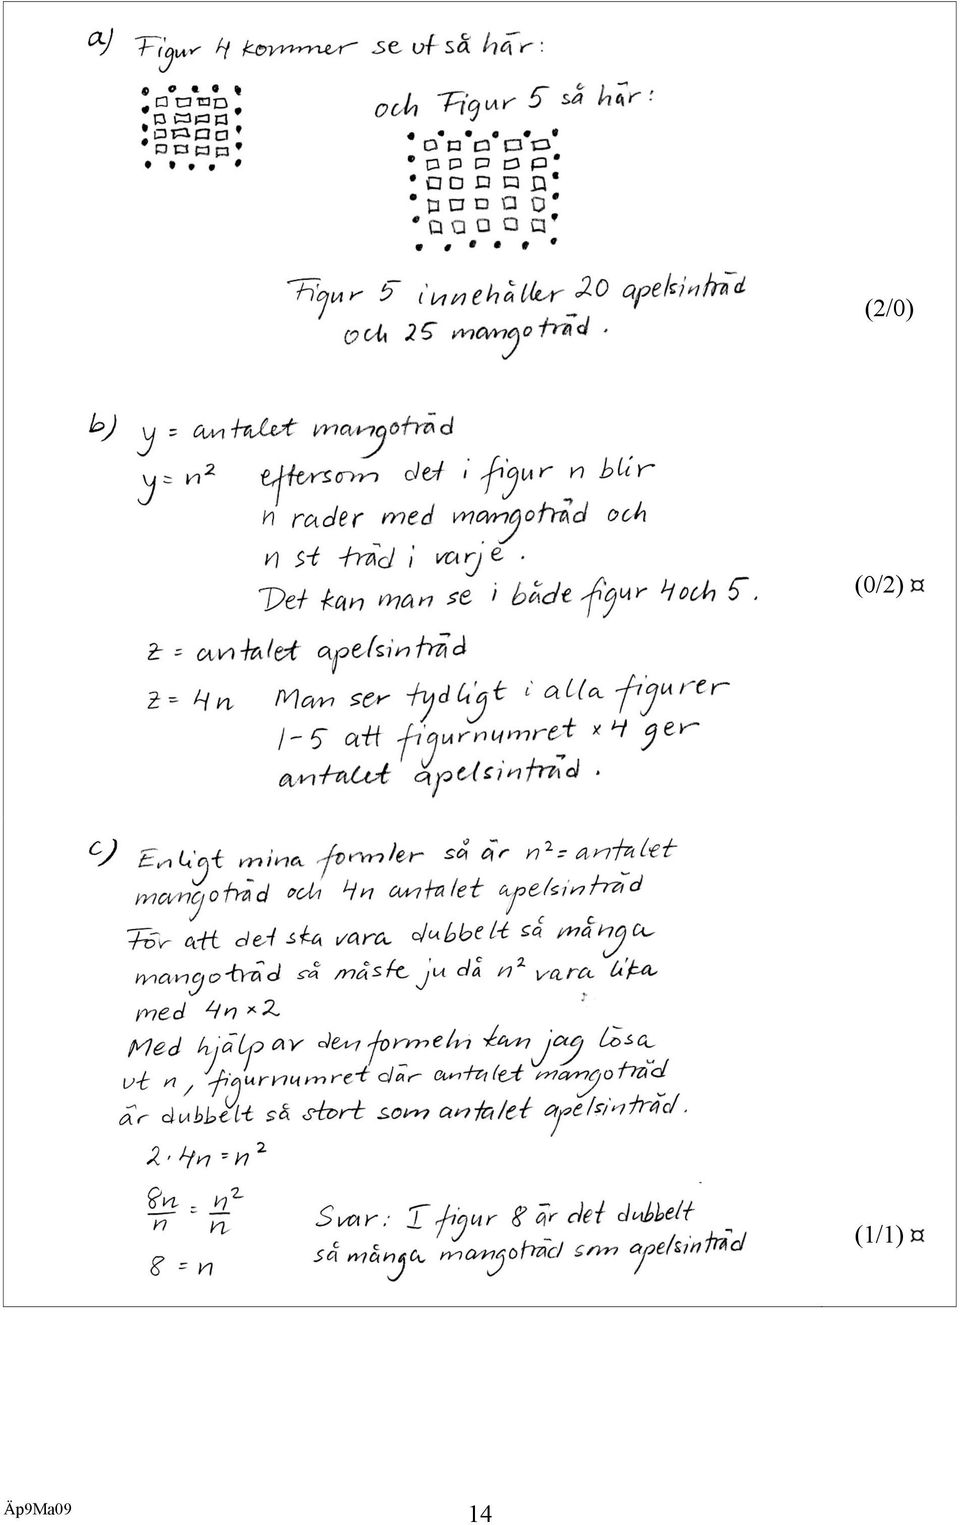 a) Figur 4 kommer se ut så här:
och Figur 5 så här:
Figur 5 innehåller 20 apelsinträd
och 25 mangoträd.
(2/0)
b) y = antalet mangoträd
y = n² eftersom det i figur n blir
n rader med mangoträd och
n st träd i varje.
Det kan man se i både figur 4 och 5.
(0/2) ¤
z = antalet apelsinträd
z = 4n Man ser tydligt i alla figurer
1-5 att figurnumret × 4 ger
antalet apelsinträd.
c) Enligt mina formler så är n² = antalet
mangoträd och 4n antalet apelsinträd
För att det ska vara dubbelt så många
mangoträd så måste ju då n² vara lika
med 4n × 2
Med hjälp av den formeln kan jag lösa
ut n, figurnumret där antalet mangoträd
är dubbelt så stort som antalet apelsinträd.
2 · 4n = n²
8n/n = n²/n
8 = n
Svar: I figur 8 är det dubbelt
så många mangoträd som apelsinträd
(1/1) ¤
Äp9Ma09
14